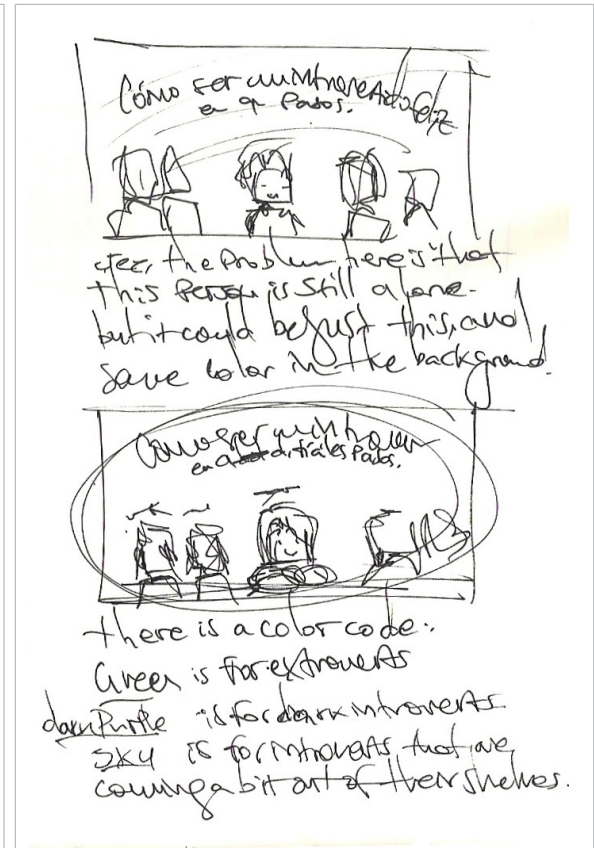 Cómo ser un introvertido feliz
en 9 Pasos.
the problem here is that
this person is still alone.
but it could be just this, and
save color in the background.
Cómo ser un introver
en digitales Pasos.
there is a color code:
Green is for extroverts
dark Purple is for dark introverts
SKY is for introverts that are
coming a bit out of their shelves.